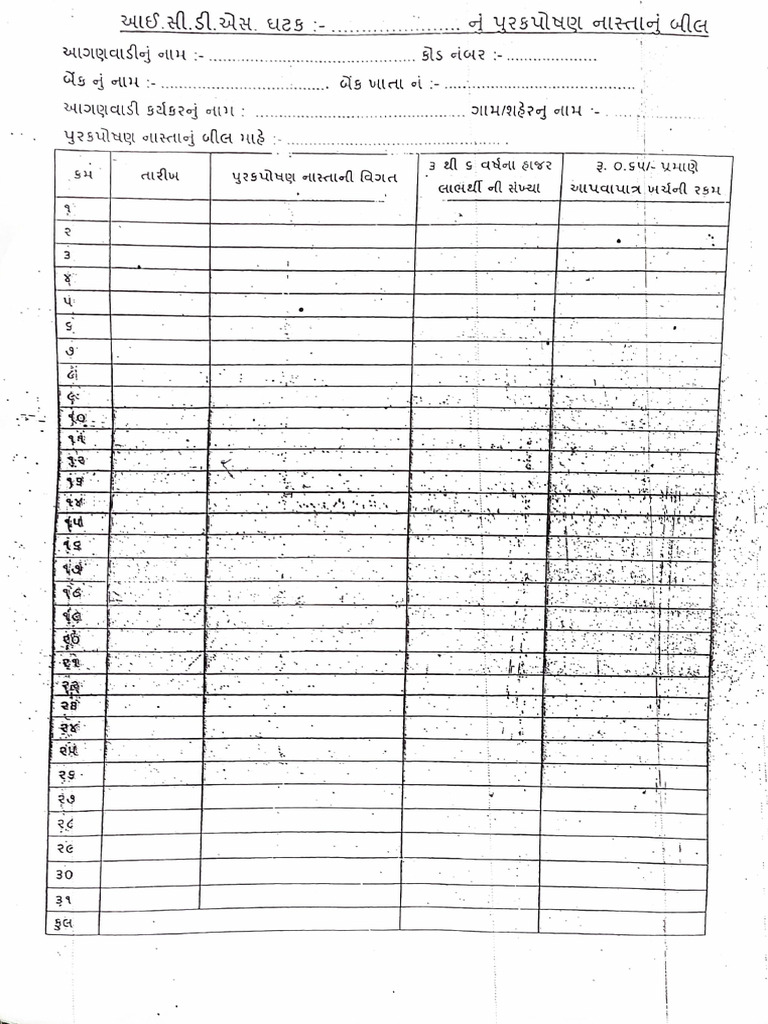 આઈ.સી.ડી.એસ. ઘટક :- ........................ નું પુરકપોષણ નાસ્તાનું બીલ
આગણવાડીનું નામ :- .......................................... કોડ નંબર :- ..................
બેંક નું નામ :- .................................. બેંક ખાતા નં :- ......................................
આગણવાડી કર્યકરનું નામ : .......................................... ગામ/શહેરનુ નામ :- ....................
પુરકપોષણ નાસ્તાનું બીલ માહે :- ............................................
ક્રમં તારીખ પુરકપોષણ નાસ્તાની વિગત ૩ થી ૬ વર્ષના હાજર લાભર્થી ની સંખ્યા રૂ. ૦.૬૫/- પ્રમાણે આપવાપાત્ર ખર્ચની રકમ
૧
૨
૩
૪
૫
૬
૭
૮
૯
૧૦
૧૧
૧૨
૧૩
૧૪
૧૫
૧૬
૧૭
૧૮
૧૯
૨૦
૨૧
૨૨
૨૩
૨૪
૨૫
૨૬
૨૭
૨૮
૨૯
૩૦
૩૧
કુલ